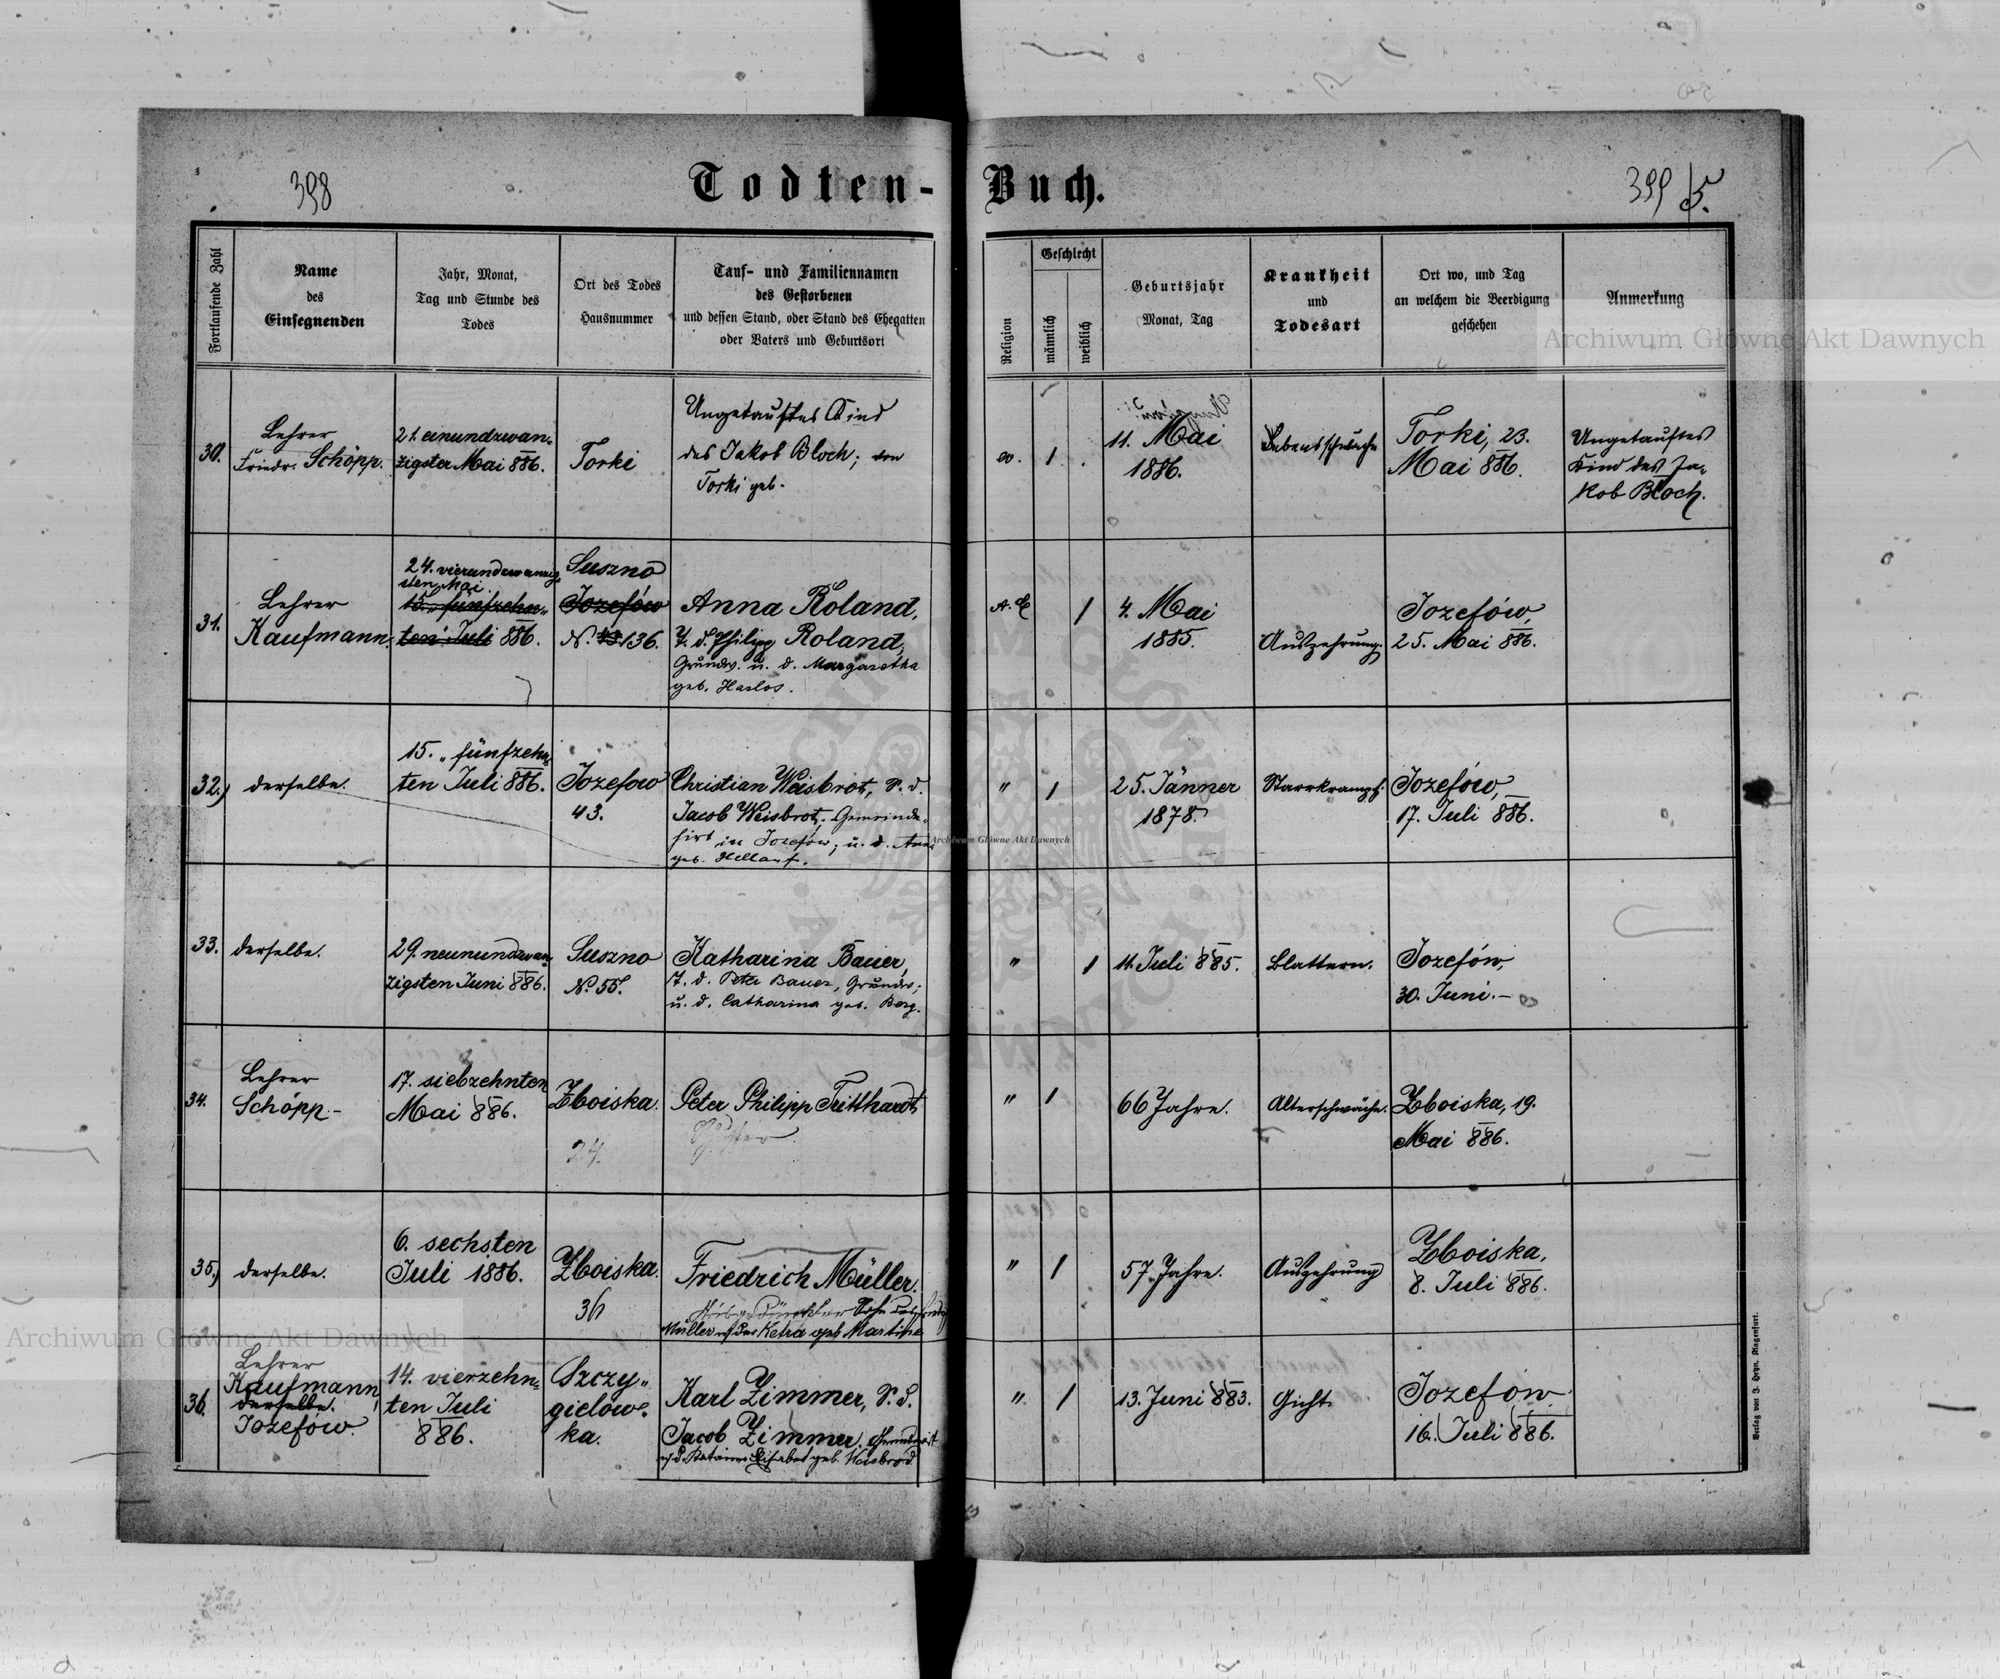 398
Todten-Buch.
399
5.
Fortlaufende Zahl
Name
des
Einsegnenden
Jahr, Monat,
Tag und Stunde des
Todes
Ort des Todes
Hausnummer
Tauf- und Familiennamen
des Gestorbenen
und dessen Stand, oder Stand des Ehegatten
oder Vaters und Geburtsort
Religion
Geschlecht
männlich
weiblich
Geburtsjahr
Monat, Tag
Krankheit
und
Todesart
Ort wo, und Tag
an welchem die Beerdigung
geschehen
Anmerkung
30.
Lehrer
Friedr. Schöpp.
21. einundzwan-
zigster Mai 886.
Torki
Ungetauftes Kind
des Jakob Bloch; von
Torki geb.
ev.
1
11. Mai
1886.
Lebensschwäche
Torki, 23.
Mai 886.
Ungetauftes
Kind des Ja-
kob Bloch.
31.
Lehrer
Kaufmann.
24. vierundzwanzig-
sten Mai
15. fünfzehn-
ten Juli 886.
Suszno
Jozefów
N. 43 136.
Anna Roland,
T. d. Philipp Roland,
Grundw. u. d. Margaretha
geb. Harlos.
A. C.
1
4. Mai
1885.
Auszehrung.
Jozefów,
25. Mai 886.
32.)
derselbe.
15. fünfzehn-
ten Juli 886.
Jozefow
43.
Christian Weisbrot, S. d.
Jacob Weisbrot, Gemeinde-
hirt in Jozefów, u. d. Anna
geb.
"
1
25. Jänner
1878.
Starrkrampf.
Jozefów,
17. Juli 886.
33.
derselbe.
29. neunundzwan-
zigsten Juni 886.
Suszno
No. 55.
Katharina Bauer,
T. d. Peter Bauer, Grundw;
u. d. Catharina geb. Berg.
"
1
11. Juli 885.
Blattern.
Jozefów,
30. Juni.-
34.
Lehrer
Schöpp.-
17. siebzehnten
Mai 886.
Zboiska.
24.
Peter Philipp Tritthardt
"
1
66 Jahre.
Alterschwäche.
Zboiska, 19.
Mai 886.
35.)
derselbe.
6. sechsten
Juli 1886.
Zboiska.
36
Friedrich Müller.
Sohn des
Müller u. der geb Martin
"
1
57 Jahre.
Auszehrung
Zboiska,
8. Juli 886.
36.
Lehrer
Kaufmann,
derselbe.
Jozefów.
14. vierzehn-
ten Juli
886.
Szczy-
gielów-
ka.
Karl Zimmer, S. d.
Jacob Zimmer,
u. d. Elisabet geb. Weisbrod
"
1
13. Juni 883.
Gicht.
Jozefów
16. Juli 886.
Verlag von J. Heyn, Klagenfurt.
Archiwum Główne Akt Dawnych
Archiwum Główne Akt Dawnych
Archiwum Główne Akt Dawnych